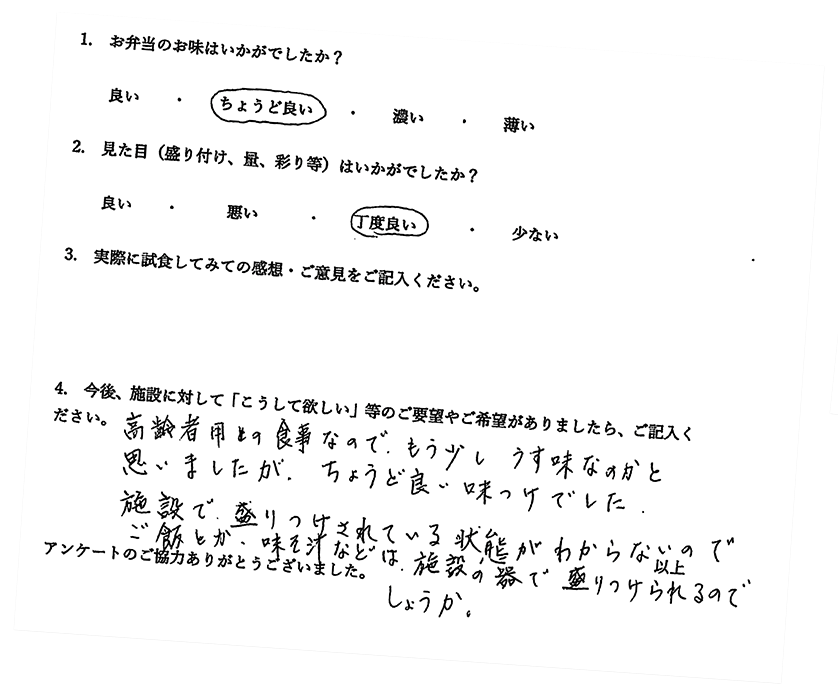 1. お弁当のお味はいかがでしたか？
良い ・ ちょうど良い ・ 濃い ・ 薄い
2. 見た目（盛り付け、量、彩り等）はいかがでしたか？
良い ・ 悪い ・ 丁度良い ・ 少ない
3. 実際に試食してみての感想・ご意見をご記入ください。
4. 今後、施設に対して「こうして欲しい」等のご要望やご希望がありましたら、ご記入く
ださい。
高齢者用との食事なので、もう少し うす味なのかと
思いましたが、ちょうど良い味つけでした。
施設で、盛りつけされている状態がわからないので
ご飯とか、味そ汁などは、施設の器で盛りつけられるので
しょうか。
アンケートのご協力ありがとうございました。
以上